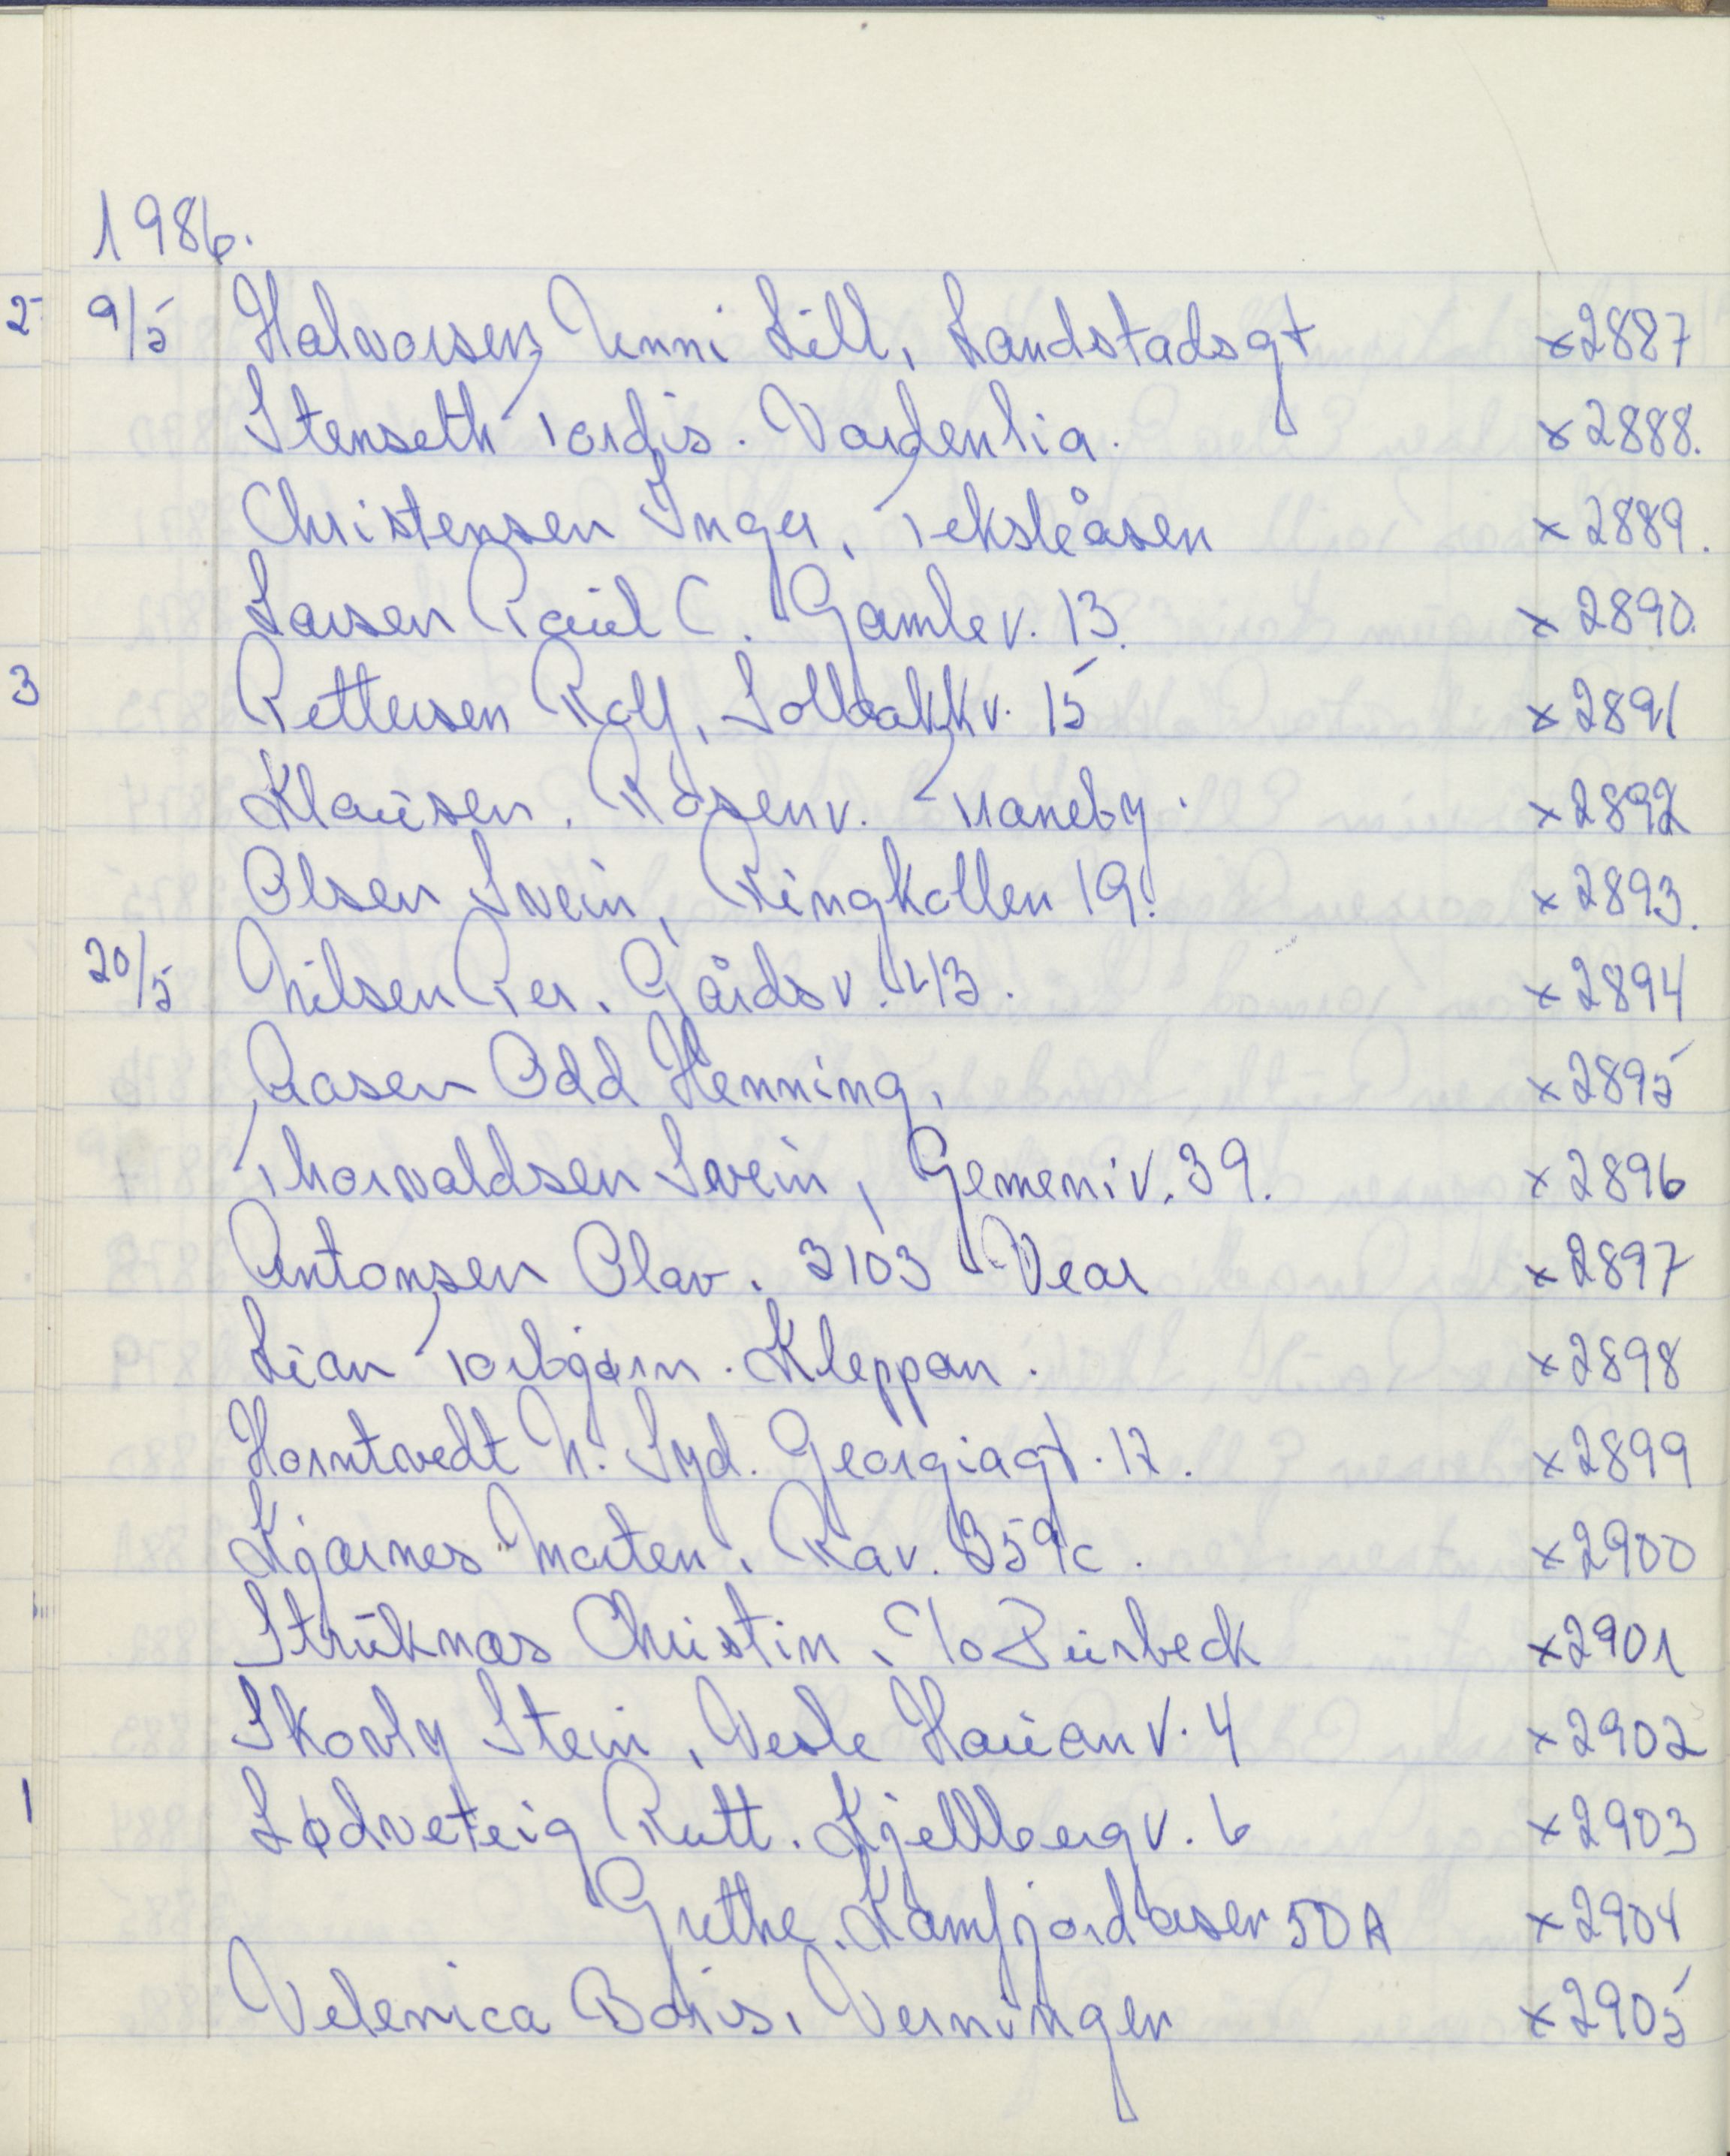 1986.
2- 9/5 Halvorsen Unni Lill, Landstadsgt x2887
Stenseth Tordis. Vardenlia. x2888.
Christensen Inger, Teksleåsen x2889.
Larsen Paul C. Gamlev. 13. x2890.
3 Pettersen Rolf, Solbakkv. 15 x2891
Klausen. Rosenv. Traneby. x2892
Olsen Svein, Ringkollen 19. x2893.
20/5 Nilsen Per. Gårdsv. 43. x2894
Aasen Odd Henning, x2895
Thorvaldsen Svein, Gemeniv. 39. x2896
Antonsen Olav. 3103 Vear x2897
Lian Torbjørn. Kleppan. x2898
Horntvedt N. Syd. Georgiagt. 12. x2899
Kjærnes Morten, Rav. 359c. x2900
Struknæs Christin, c/o x2901
Skovly Stein, Vesle Hauan v. 4 x2902
1 Lødveteig Rutt. Kjellbergv. 6 x2903
Grethe. Kamfjordåsen 50A x2904
Velenica Boris, Verningen x2905